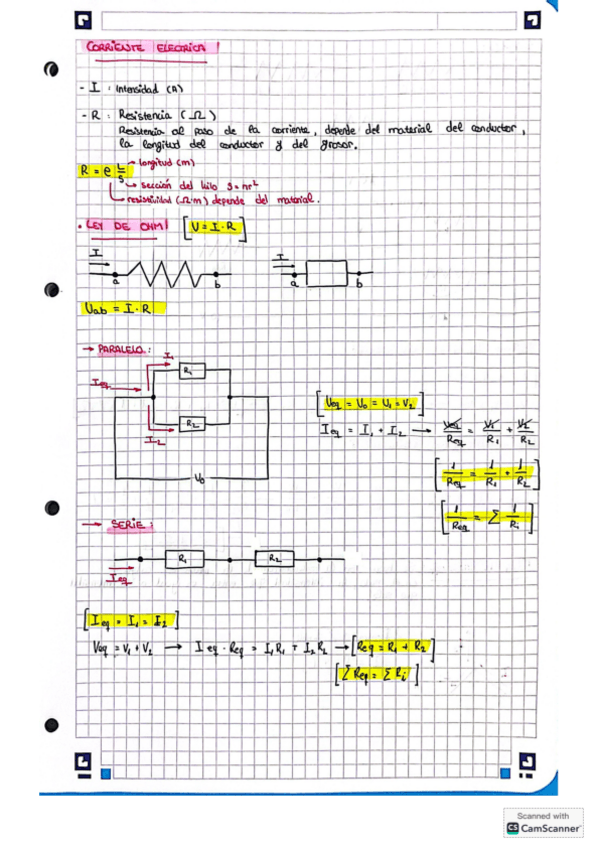 CORRIENTE ELECTRICA
- I : Intensidad (A)
- R : Resistencia (Ω)
Resistencia al paso de la corriente, depende del material del conductor,
la longitud del conductor y del grosor.
R = ρ L/S
longitud (m)
sección del hilo S=πr²
resistividad (Ω·m) depende del material.
• LEY DE OHM [V = I · R]
I
a b
I
a b
Vab = I · R
→ PARALELO:
I₁
R₁
Ieq
R₂
I₂
V₀
[Veq = V₀ = V₁ = V₂]
Ieq = I₁ + I₂ → Veq/Req = V₁/R₁ + V₂/R₂
[1/Req = 1/R₁ + 1/R₂]
[1/Req = Σ 1/Ri]
→ SERIE:
R₁ R₂
Ieq
[Ieq = I₁ = I₂]
Veq = V₁ + V₂ → Ieq · Req = I₁R₁ + I₂R₂ → [Req = R₁ + R₂]
[Σ Req = Σ Ri]
Scanned with
CS CamScanner